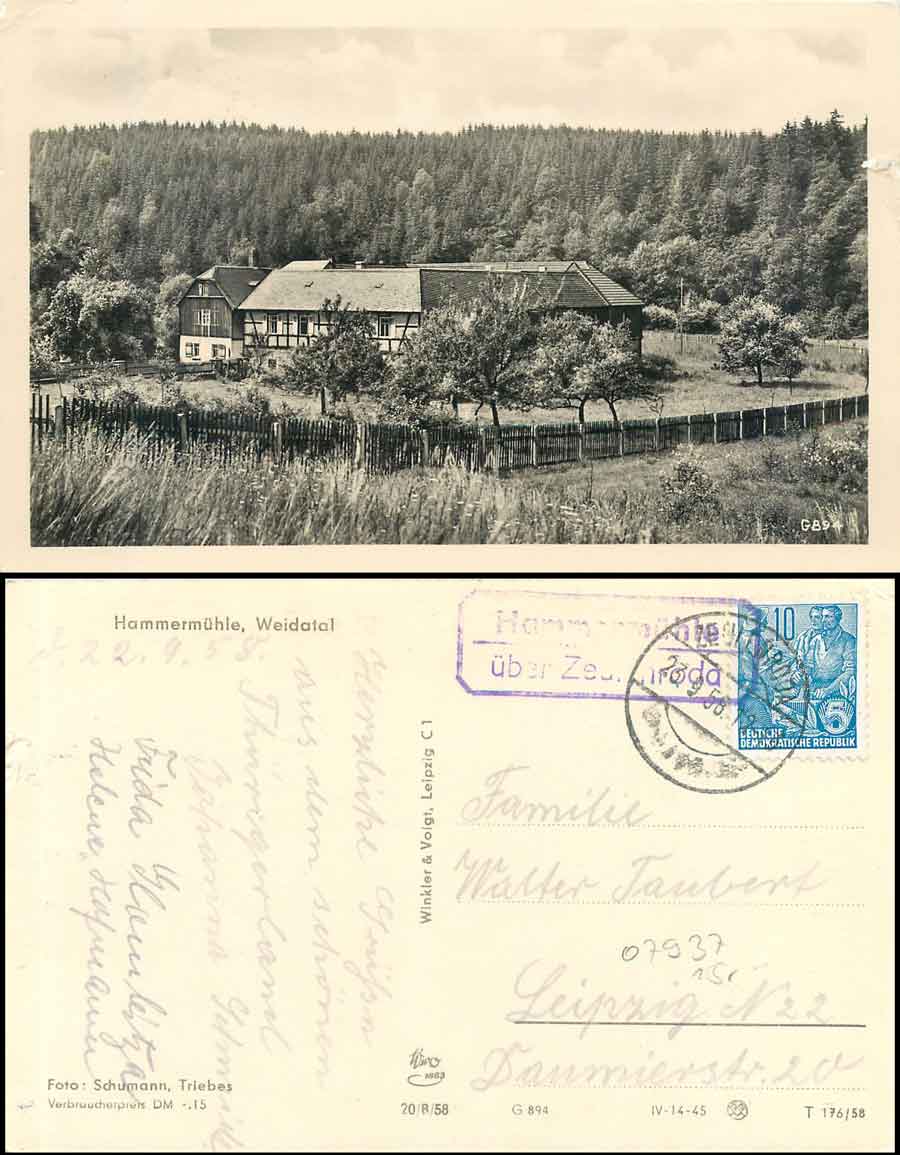 G894
Hammermühle, Weidatal
Hammermühle
über Zeulenroda
23.9.58
10
DEUTSCHE
DEMOKRATISCHE REPUBLIK
22.9.58.
Herzliche Grüße
aus dem schönen
Thüringerland
Johanna Schmidt
Frida
Helene
Winkler & Voigt, Leipzig C 1
Familie
Walter Taubert
07937
Leipzig N 22
Daumierstr. 20
Foto: Schumann, Triebes
Verbraucherpreis DM -.15
1883
20/R/58
G 894
IV-14-45
T 176/58